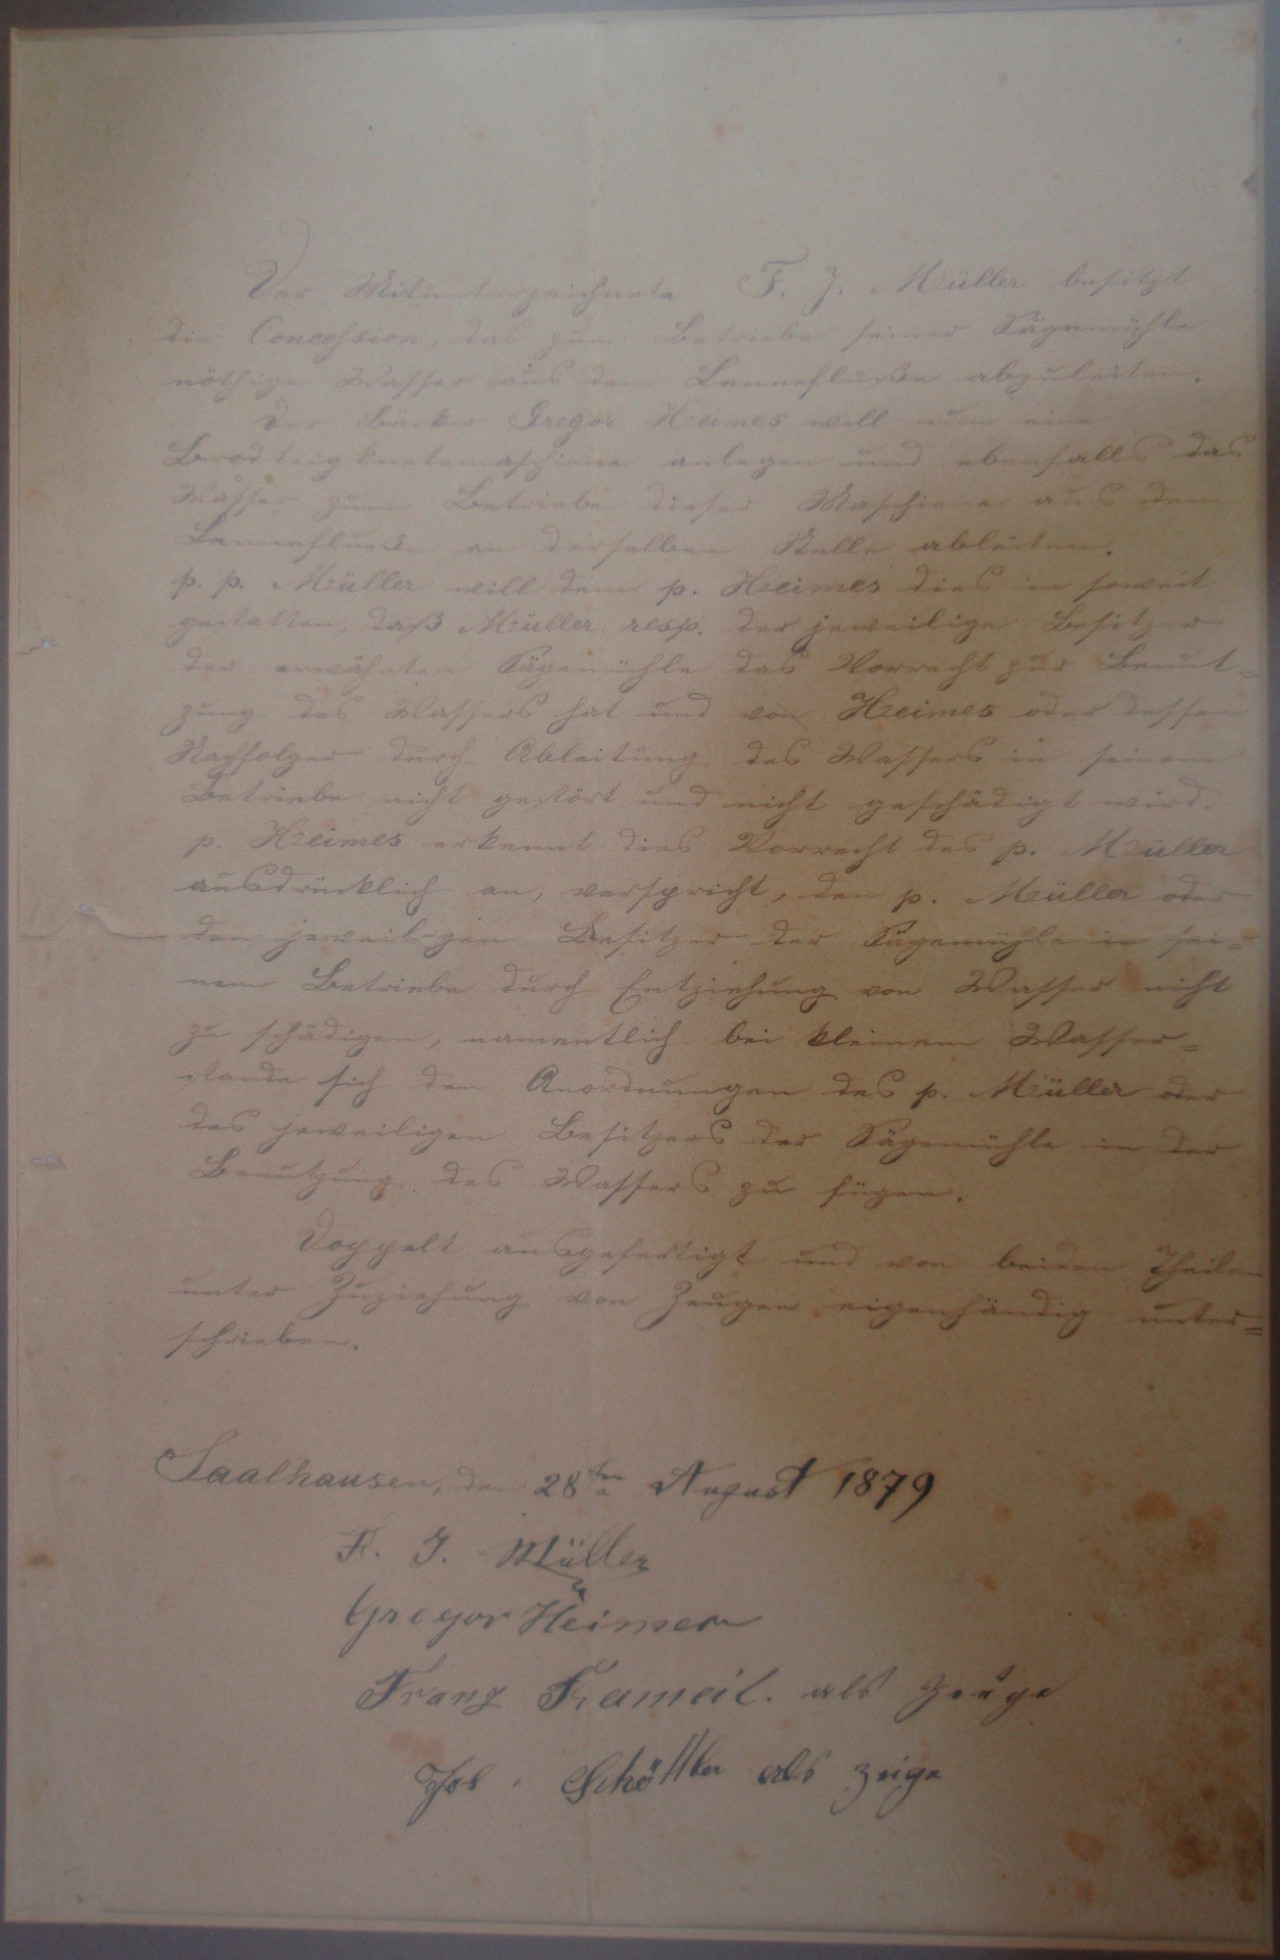 Der Mitunterzeichnete F. J. Müller besitzt
die Concession, das zum Betriebe seiner Sägemühle
nöthige Wasser aus dem Lenneflusse abzuleiten.
Der Bäcker Gregor Heimes will nun eine
Brodteigknetemaschiene anlegen und ebenfalls das
Wasser zum Betriebe dieser Maschiene aus dem
Lenneflusse an derselben Stelle ableiten.
p. p. Müller will dem p. Heimes dies in soweit
gestatten, daß Müller resp. der jeweilige Besitzer
der erwähnten Sägemühle das Vorrecht zur Benut=
zung des Wassers hat und von Heimes oder dessen
Nachfolger durch Ableitung des Wassers in seinem
Betriebe nicht gestört und nicht geschädigt wird.
p. Heimes erkennt dies Vorrecht des p. Müller
ausdrücklich an, verspricht, den p. Müller oder
den jeweiligen Besitzer der Sägemühle in sei=
nem Betriebe durch Entziehung von Wasser nicht
zu schädigen, namentlich bei kleinem Wasser=
stande sich den Anordnungen des p. Müller oder
des jeweiligen Besitzers der Sägemühle in der
Benutzung des Wassers zu fügen.
Doppelt ausgefertigt und von beiden Theilen
unter Zuziehung von Zeugen eigenhändig unter=
schrieben.
Saalhausen, den 28ten August 1879
F. J. Müller
Gregor Heimes
Franz Rameil. als Zeuge
Jos. Schöttler als zeige